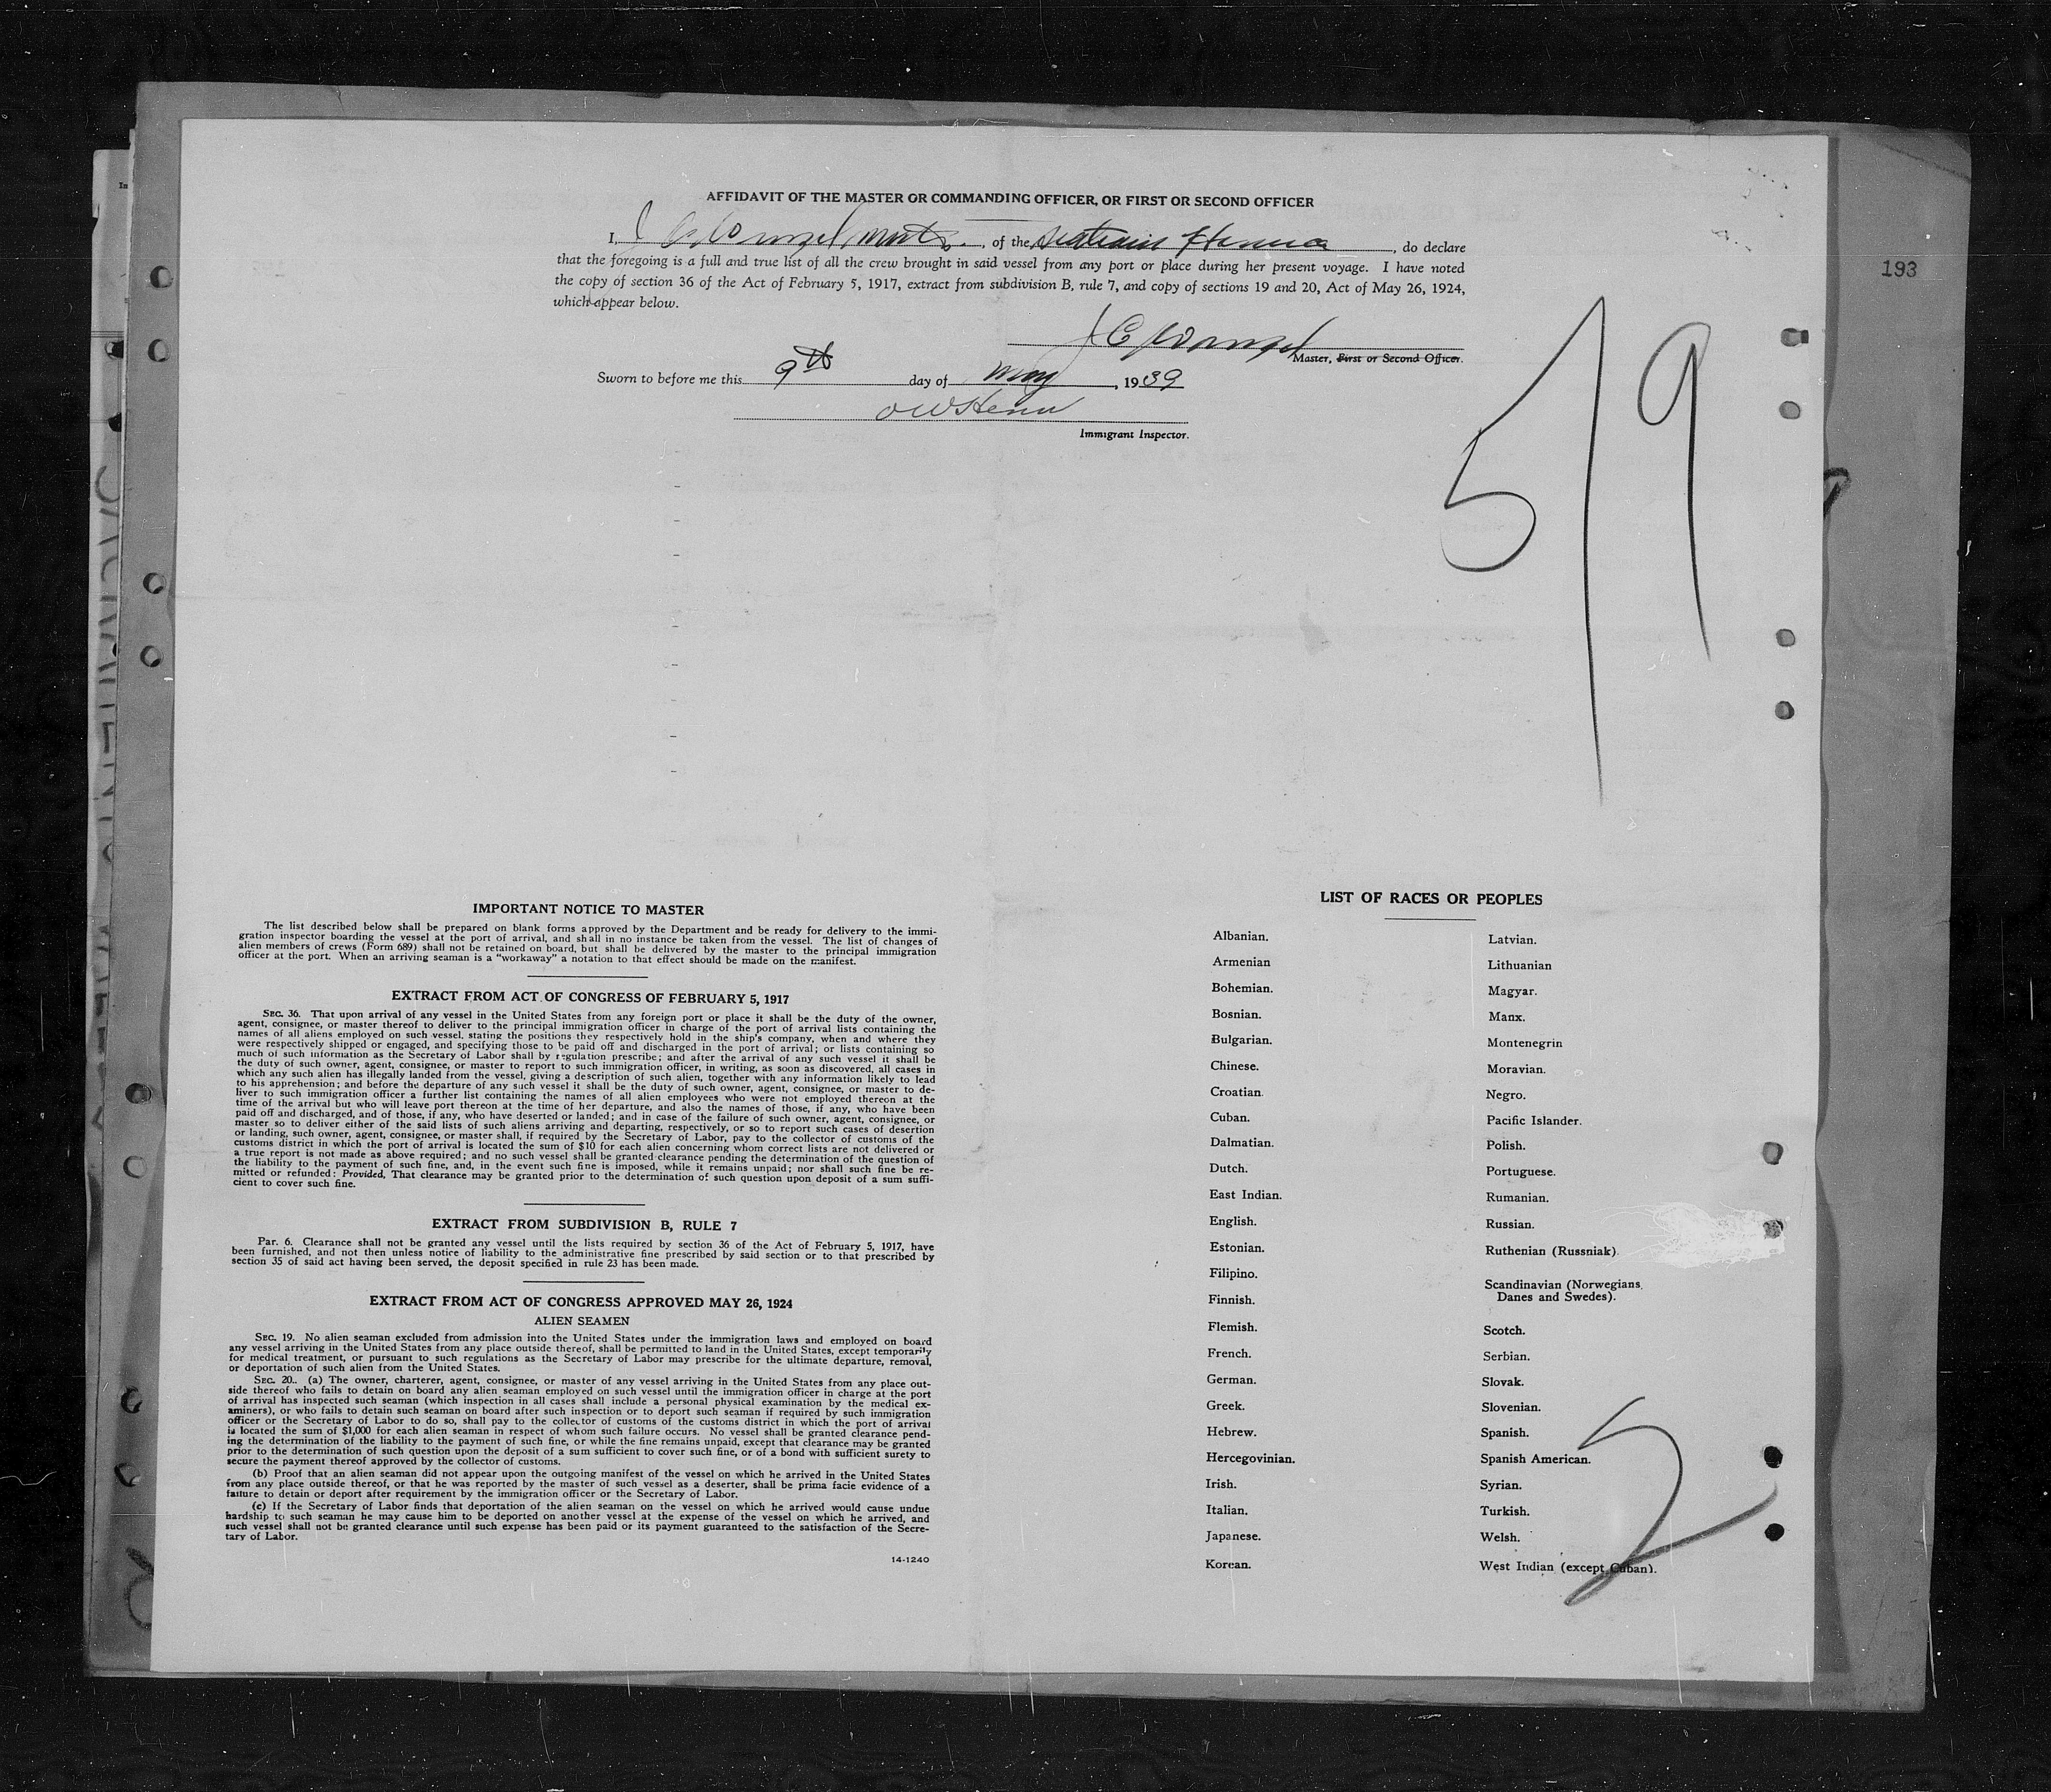 AFFIDAVIT OF THE MASTER OR COMMANDING OFFICER, OR FIRST OR SECOND OFFICER
I, of the , do declare
that the foregoing is a full and true list of all the crew brought in said vessel from any port or place during her present voyage. I have noted
the copy of section 36 of the Act of February 5, 1917, extract from subdivision B, rule 7, and copy of sections 19 and 20, Act of May 26, 1924,
which appear below.
Master, First or Second Officer.
Sworn to before me this 9th day of May, 1939
Immigrant Inspector.
193
59
IMPORTANT NOTICE TO MASTER
The list described below shall be prepared on blank forms approved by the Department and be ready for delivery to the immi-
gration inspector boarding the vessel at the port of arrival, and shall in no instance be taken from the vessel. The list of changes of
alien members of crews (Form 689) shall not be retained on board, but shall be delivered by the master to the principal immigration
officer at the port. When an arriving seaman is a "workaway" a notation to that effect should be made on the manifest.
EXTRACT FROM ACT OF CONGRESS OF FEBRUARY 5, 1917
SEC. 36. That upon arrival of any vessel in the United States from any foreign port or place it shall be the duty of the owner,
agent, consignee, or master thereof to deliver to the principal immigration officer in charge of the port of arrival lists containing the
names of all aliens employed on such vessel, stating the positions they respectively hold in the ship's company, when and where they
were respectively shipped or engaged, and specifying those to be paid off and discharged in the port of arrival; or lists containing so
much of such information as the Secretary of Labor shall by regulation prescribe; and after the arrival of any such vessel it shall be
the duty of such owner, agent, consignee, or master to report to such immigration officer, in writing, as soon as discovered, all cases in
which any such alien has illegally landed from the vessel, giving a description of such alien, together with any information likely to lead
to his apprehension; and before the departure of any such vessel it shall be the duty of such owner, agent, consignee, or master to de-
liver to such immigration officer a further list containing the names of all alien employees who were not employed thereon at the
time of the arrival but who will leave port thereon at the time of her departure, and also the names of those, if any, who have been
paid off and discharged, and of those, if any, who have deserted or landed; and in case of the failure of such owner, agent, consignee, or
master so to deliver either of the said lists of such aliens arriving and departing, respectively, or so to report such cases of desertion
or landing, such owner, agent, consignee, or master shall, if required by the Secretary of Labor, pay to the collector of customs of the
customs district in which the port of arrival is located the sum of $10 for each alien concerning whom correct lists are not delivered or
a true report is not made as above required; and no such vessel shall be granted clearance pending the determination of the question of
the liability to the payment of such fine, and, in the event such fine is imposed, while it remains unpaid; nor shall such fine be re-
mitted or refunded: Provided, That clearance may be granted prior to the determination of such question upon deposit of a sum suffi-
cient to cover such fine.
EXTRACT FROM SUBDIVISION B, RULE 7
Par. 6. Clearance shall not be granted any vessel until the lists required by section 36 of the Act of February 5, 1917, have
been furnished, and not then unless notice of liability to the administrative fine prescribed by said section or to that prescribed by
section 35 of said act having been served, the deposit specified in rule 23 has been made.
EXTRACT FROM ACT OF CONGRESS APPROVED MAY 26, 1924
ALIEN SEAMEN
SEC. 19. No alien seaman excluded from admission into the United States under the immigration laws and employed on board
any vessel arriving in the United States from any place outside thereof, shall be permitted to land in the United States, except temporarily
for medical treatment, or pursuant to such regulations as the Secretary of Labor may prescribe for the ultimate departure, removal,
or deportation of such alien from the United States.
SEC. 20. (a) The owner, charterer, agent, consignee, or master of any vessel arriving in the United States from any place out-
side thereof who fails to detain on board any alien seaman employed on such vessel until the immigration officer in charge at the port
of arrival has inspected such seaman (which inspection in all cases shall include a personal physical examination by the medical ex-
aminers), or who fails to detain such seaman on board after such inspection or to deport such seaman if required by such immigration
officer or the Secretary of Labor to do so, shall pay to the collector of customs of the customs district in which the port of arrival
is located the sum of $1,000 for each alien seaman in respect of whom such failure occurs. No vessel shall be granted clearance pend-
ing the determination of the liability to the payment of such fine, or while the fine remains unpaid, except that clearance may be granted
prior to the determination of such question upon the deposit of a sum sufficient to cover such fine, or of a bond with sufficient surety to
secure the payment thereof approved by the collector of customs.
(b) Proof that an alien seaman did not appear upon the outgoing manifest of the vessel on which he arrived in the United States
from any place outside thereof, or that he was reported by the master of such vessel as a deserter, shall be prima facie evidence of a
failure to detain or deport after requirement by the immigration officer or the Secretary of Labor.
(c) If the Secretary of Labor finds that deportation of the alien seaman on the vessel on which he arrived would cause undue
hardship to such seaman he may cause him to be deported on another vessel at the expense of the vessel on which he arrived, and
such vessel shall not be granted clearance until such expense has been paid or its payment guaranteed to the satisfaction of the Secre-
tary of Labor.
14-1240
LIST OF RACES OR PEOPLES
Albanian.
Armenian
Bohemian.
Bosnian.
Bulgarian.
Chinese.
Croatian.
Cuban.
Dalmatian.
Dutch.
East Indian.
English.
Estonian.
Filipino.
Finnish.
Flemish.
French.
German.
Greek.
Hebrew.
Hercegovinian.
Irish.
Italian.
Japanese.
Korean.
Latvian.
Lithuanian
Magyar.
Manx.
Montenegrin
Moravian.
Negro.
Pacific Islander.
Polish.
Portuguese.
Rumanian.
Russian.
Ruthenian (Russniak).
Scandinavian (Norwegians,
Danes and Swedes).
Scotch.
Serbian.
Slovak.
Slovenian.
Spanish.
Spanish American.
Syrian.
Turkish.
Welsh.
West Indian (except Cuban).
2